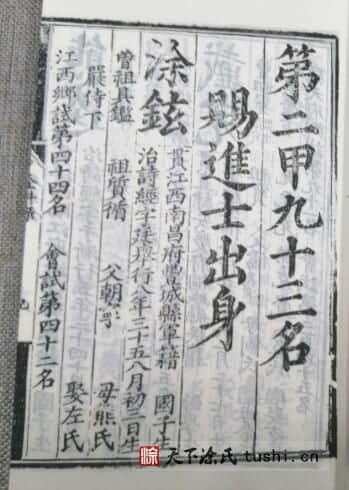 第二甲九十三名
賜進士出身
涂鉉
貫江西南昌府豐城縣軍籍 國子生
治詩經字廷 行八年三十五八月初三日生
曾祖具鑑 祖質循 父朝 母熊氏
嚴侍下 娶左氏
江西鄉試第四十四名 會試第四十二名
涂 天下涂氏 tushi.cn